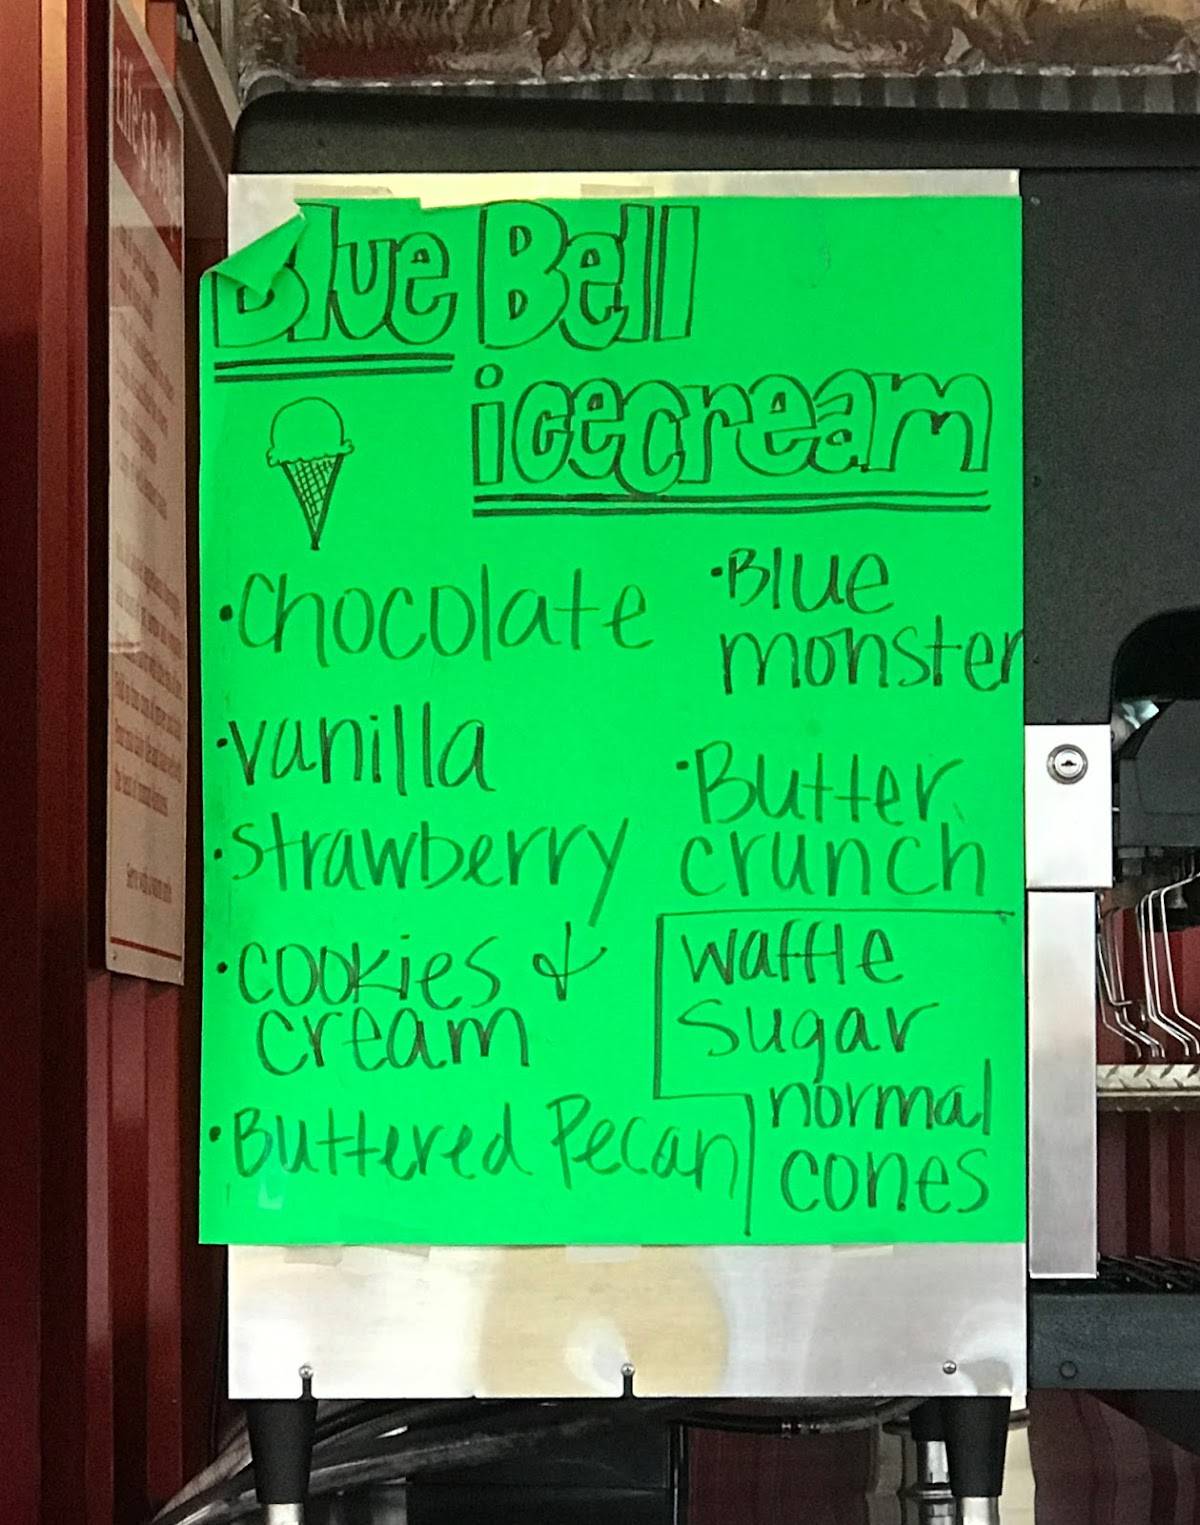 Blue Bell
icecream
·Chocolate
·vanilla
·strawberry
·cookies &
cream
·Buttered Pecan
·Blue
monster
·Butter
crunch
waffle
sugar
normal
cones
Life's